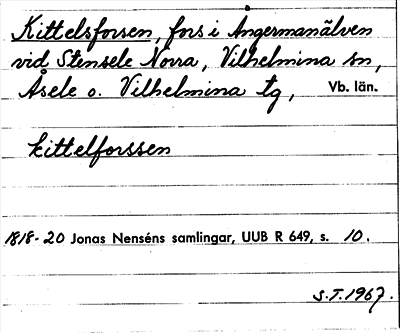 Kittelsforsen, fors i Ångermanälven
vid Stensele Norra, Vilhelmina sn,
Åsele o. Vilhelmina tg, Vb. län.
kittelforssen
1818-20 Jonas Nenséns samlingar, UUB R 649, s. 10.
S.T. 1967.